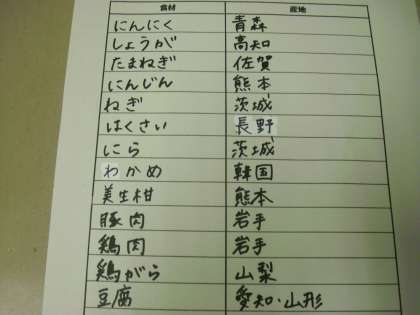 食材 産地
にんにく 青森
しょうが 高知
たまねぎ 佐賀
にんじん 熊本
ねぎ 茨城
はくさい 長野
にら 茨城
わかめ 韓国
美生柑 熊本
豚肉 岩手
鶏肉 岩手
鶏がら 山梨
豆腐 愛知・山形